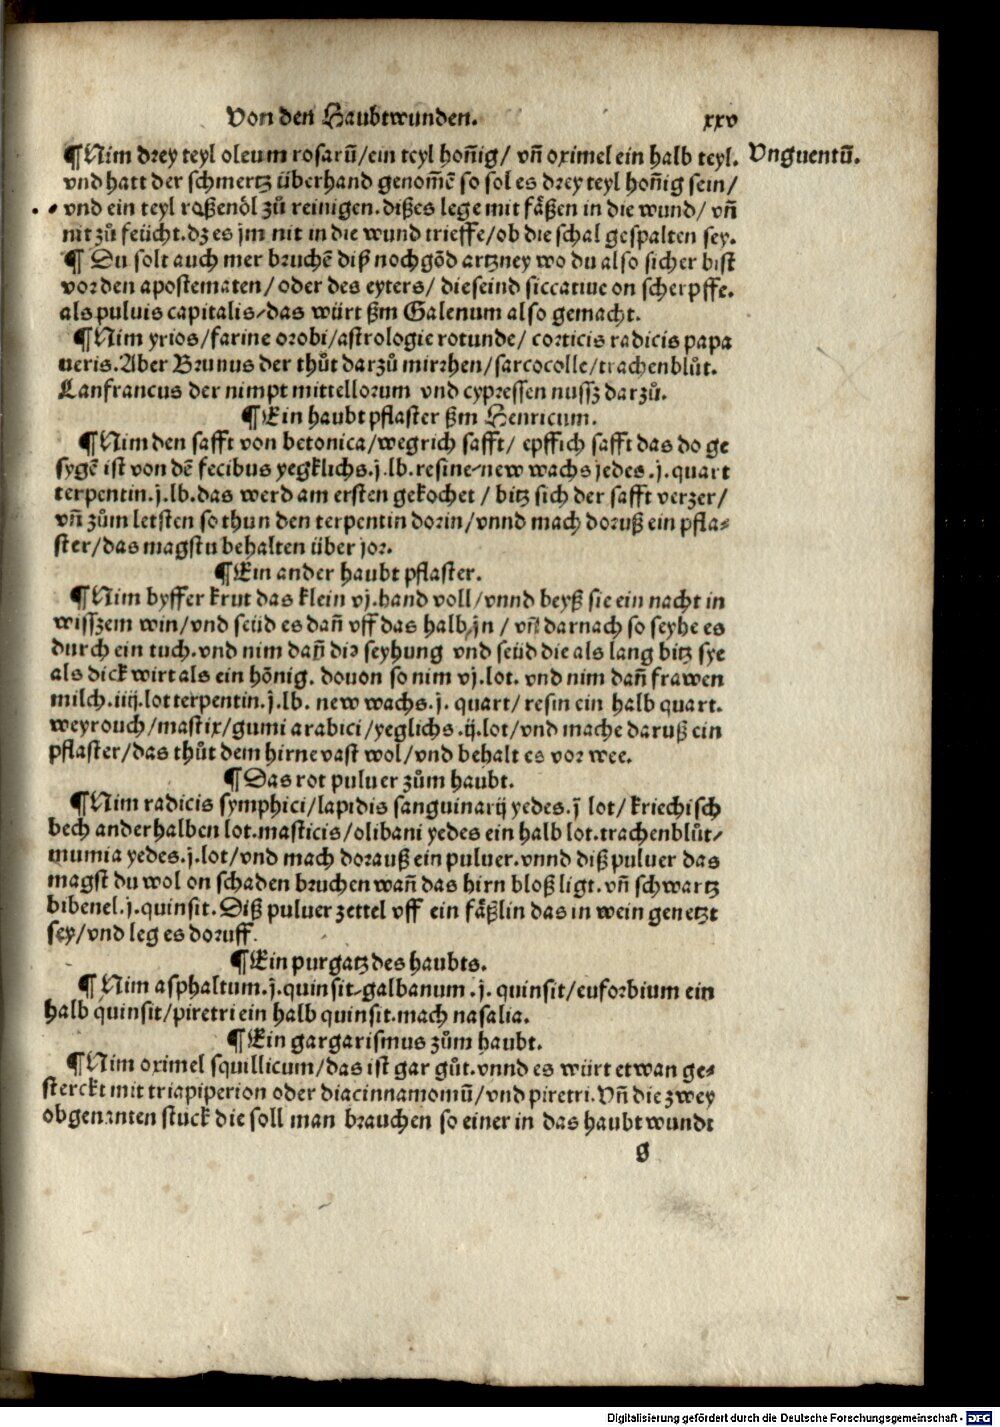 Von den Haubtwunden. xxv
¶Nim drey teyl oleum rosarū/ein teyl hoñig/ vñ oximel ein halb teyl. Vnguentū.
vnd hatt der schmertz überhand genom̄ē so sol es drey teyl hoñig sein/
vnd ein teyl roßenöl zů reinigen. dißes lege mit fäßen in die wund/ vñ
nit zů feücht. dz es jm nit in die wund trieffe/ob die schal gespalten sey.
¶ Du solt auch mer bruchē diß nochgōd artzney wo du also sicher bist
vor den apostematen/ oder des eyters/ die seind siccatiue on scherpffe.
als puluis capitalis/das würt ßm Galenum also gemacht.
¶Nim yrios/farine orobi/astrologie rotunde/ corticis radicis papa
ueris. Aber Brunus der thůt darzů mirrhen/sarcocolle/trachenblůt.
Lanfrancus der nimpt mittellorum vnd cypressen nussz darzů.
¶Ein haubt pflaster ßm Henricum.
¶Nim den safft von betonica/wegrich safft/ epffich safft das do ge
sygē ist von dē fecibus yegklichs .j. lb. resine/new wachs jedes .j. quart
terpentin .j. lb. das werd am ersten gekochet / bitz sich der safft verzer/
vñ zům letsten so thun den terpentin dorin/vnnd mach doruß ein pfla⸗
ster/das magstu behalten über jor.
¶Ein ander haubt pflaster.
¶Nim byffer krut das klein vj. hand voll/vnnd beyß sie ein nacht in
wisszem win/vnd seüd es dañ vff das halb jn / vñ darnach so seyhe es
durch ein tuch. vnd nim dañ die seyhung vnd seüd die als lang bitz sye
als dick wirt als ein hönig. douon so nim vj. lot. vnd nim dañ frawen
milch .iiij. lot terpentin .j. lb. new wachs .j. quart/ resin ein halb quart.
weyrouch/mastix/gumi arabici/yeglichs .ij. lot/vnd mache daruß ein
pflaster/das thůt dem hirne vast wol/vnd behalt es vor wee.
¶Das rot puluer zům haubt.
¶Nim radicis symphici/lapidis sanguinarij yedes .j lot/ kriechisch
bech anderhalben lot. masticis/olibani yedes ein halb lot. trachenblůt/
mumia yedes .j. lot/vnd mach dorauß ein puluer. vnnd diß puluer das
magst du wol on schaden bruchen wañ das hirn bloß ligt. vñ schwartz
bibenel .j. quinsit. Diß puluer zettel vff ein fäßlin das in wein genetzt
sey/vnd leg es doruff.
¶Ein purgatz des haubts.
¶Nim asphaltum .j. quinsit/galbanum .j. quinsit/euforbium ein
halb quinsit/piretri ein halb quinsit. mach nasalia.
¶Ein gargarismus zům haubt.
¶Nim oximel squillicum/das ist gar gůt. vnnd es würt etwan ge⸗
sterckt mit triapiperion oder diacinnamomū/vnd piretri. Vñ die zwey
obgenanten stuck die soll man brauchen so einer in das haubt wundt
g
Digitalisierung gefördert durch die Deutsche Forschungsgemeinschaft - DFG